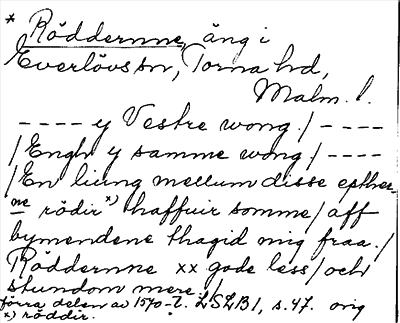 * Röddernne, äng i
Everlövs sn, Torna hd,
Malm. l.
---- y Vestre wong./ ----
/Engh y samme wong/ ----
/En liung mellum disse epther-
ne rödir x) thaffuir somme/ aff
bymendene thagid mig fraa./
Röddernne xx gode less/ och
stundom mere./
förra delen av 1570-t. LSLB1, s. 47. orig
x) röddir.